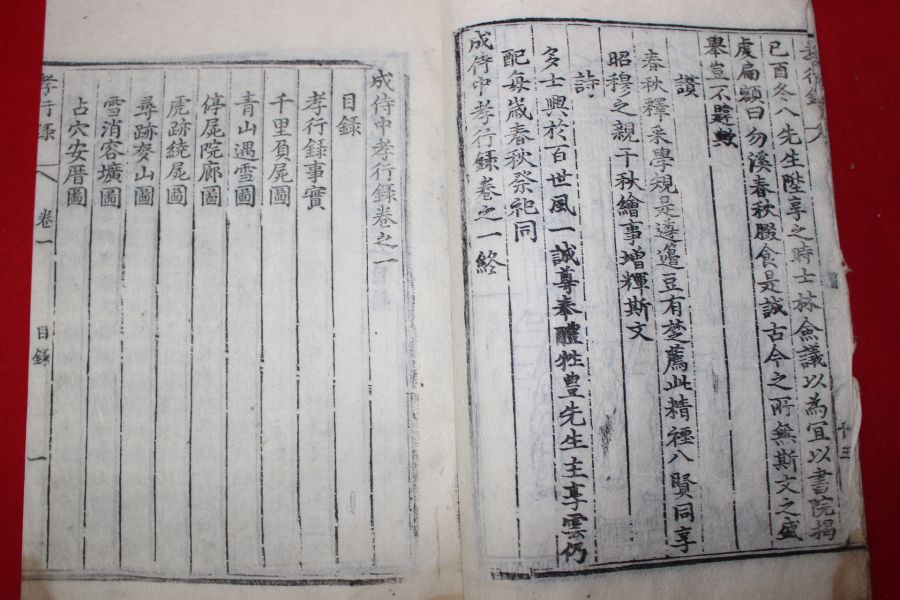 孝行錄
十三
己酉冬八先生陞享之時士林僉議以為宜以書院揭
虔扁顏曰勿溪春秋腏食是誠古今之所無斯文之盛
舉豈不韙歟
讚
春秋釋采學規是遵籩豆有楚薦此精禋八賢同享
昭穆之親千秋繪事增輝斯文
詩
多士興於百世風一誠尊奉醴牲豊先生主享雲仍
配每歲春秋祭祀同
成侍中孝行錄卷之一終
成侍中孝行錄卷之一
目錄
孝行錄事實
千里負屍圖
青山遇雪圖
停屍院廊圖
虎跡繞屍圖
尋跡麥山圖
雪消容壙圖
占穴安厝圖
孝行錄 卷一 目錄 一